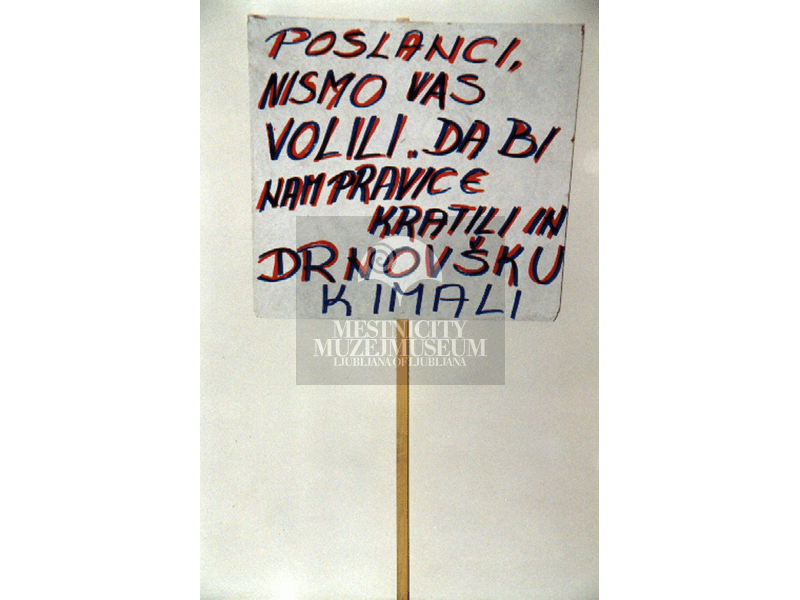 POSLANCI,
NISMO VAS
VOLILI, DA BI
NAM PRAVICE
KRATILI IN
DRNOVŠKU
KIMALI
MESTNICITY
MUZEJMUSEUM
LJUBLJANAOFLJUBLJANA